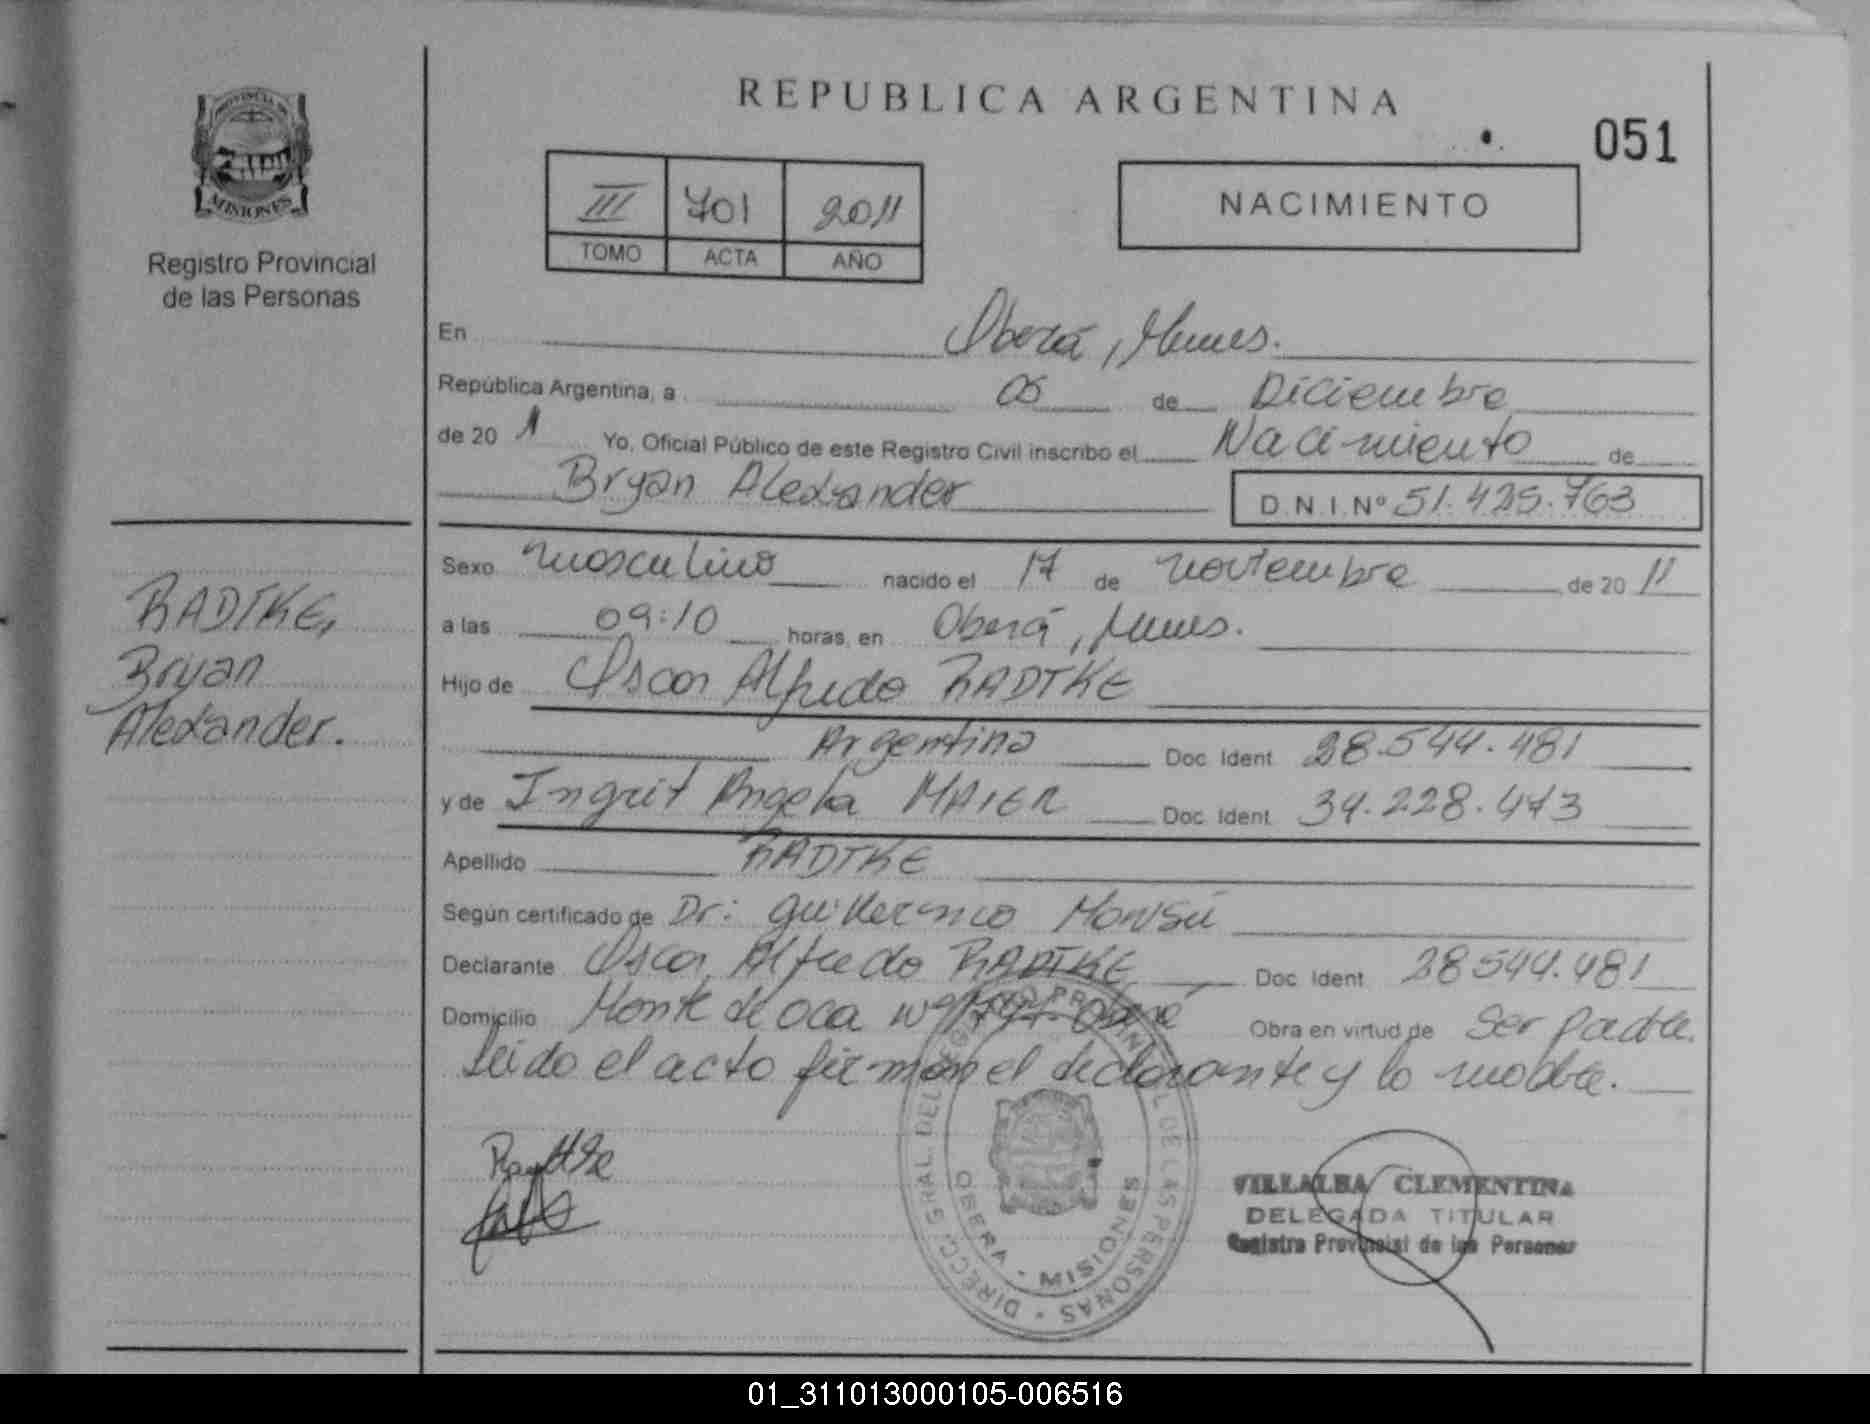 REPUBLICA ARGENTINA
051
PROVINCIA DE
MISIONES
Registro Provincial
de las Personas
III 701 2011
TOMO ACTA AÑO
NACIMIENTO
En Oberá, Mnes.
República Argentina, a 05 de Diciembre
de 20 11 Yo, Oficial Público de este Registro Civil inscribo el Nacimiento de
Bryan Alexander D.N.I.Nº 51.425.763
RADTKE,
Bryan
Alexander.
Sexo masculino nacido el 17 de noviembre de 20 11
a las 09:10 horas, en Oberá, Mnes.
Hijo de Oscar Alfredo RADTKE
Argentino Doc. Ident. 28.544.481
y de Ingrit Angela MAIER Doc. Ident. 34.228.473
Apellido RADTKE
Según certificado de Dr: Guillermo Monsú
Declarante Oscar Alfredo RADTKE Doc. Ident. 28544.481
Domicilio Monte de oca Nº Oberá Obra en virtud de Ser padre.
Leido el acto firman el declarante y la madre.
DIRECC. GRAL. DEL REGISTRO PROVINCIAL DE LAS PERSONAS
OBERA - MISIONES
VILLALBA CLEMENTINA
DELEGADA TITULAR
Registro Provincial de las Personas
01_311013000105-006516